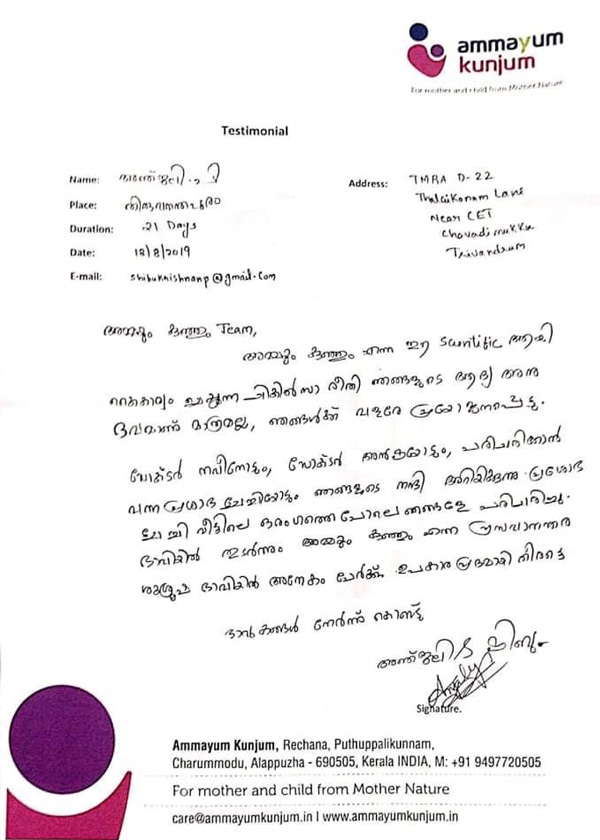 ammayum
kunjum
For mother and child from Mother Nature
Testimonial
Name: അഞ്ജലി . പി
Place: തിരുവനന്തപുരം
Duration: 21 Days
Date: 18/8/2019
E-mail: shibukrishnanp@gmail.com
Address: TMRA D-22
Thalaikonam Lane
Near CET
Chavadimukku
Trivandrum
അമ്മയും കുഞ്ഞും Team,
അമ്മയും കുഞ്ഞും എന്ന ഈ Scientific ആയി
കൈകാര്യം ചെയ്യുന്ന ചികിൽസാ രീതി ഞങ്ങളുടെ ആദ്യ അനു
ഭവമാണ് മാത്രമല്ല, ഞങ്ങൾക്ക് വളരേ പ്രയോജനപ്പെട്ടു.
ഡോക്ടർ നവീനോടും, ഡോക്ടർ അൻകയോടും, പരിചരിക്കാൻ
വന്ന പ്രശോഭ ചേച്ചിയോടും ഞങ്ങളുടെ നന്ദി അറിയിക്കുന്നു. പ്രശോഭ
ചേച്ചി വീട്ടിലെ ഒരംഗത്തെപോലെ ഞങ്ങളേ പരിപാലിച്ചു.
ഭാവിയിൽ തുടർന്നും അമ്മയും കുഞ്ഞും എന്ന പ്രസവാനന്തര
ശുശ്രൂഷ ഭാവിയിൽ അനേകം പേർക്ക് ഉപകാര പ്രദമായി തീരട്ടെ
ഭാവുകങ്ങൾ നേർന്ന് കൊണ്ട്
അഞ്ജലി & ഷിബു
Signature.
Ammayum Kunjum, Rechana, Puthuppalikunnam,
Charummodu, Alappuzha - 690505, Kerala INDIA, M: +91 9497720505
For mother and child from Mother Nature
care@ammayumkunjum.in l www.ammayumkunjum.in